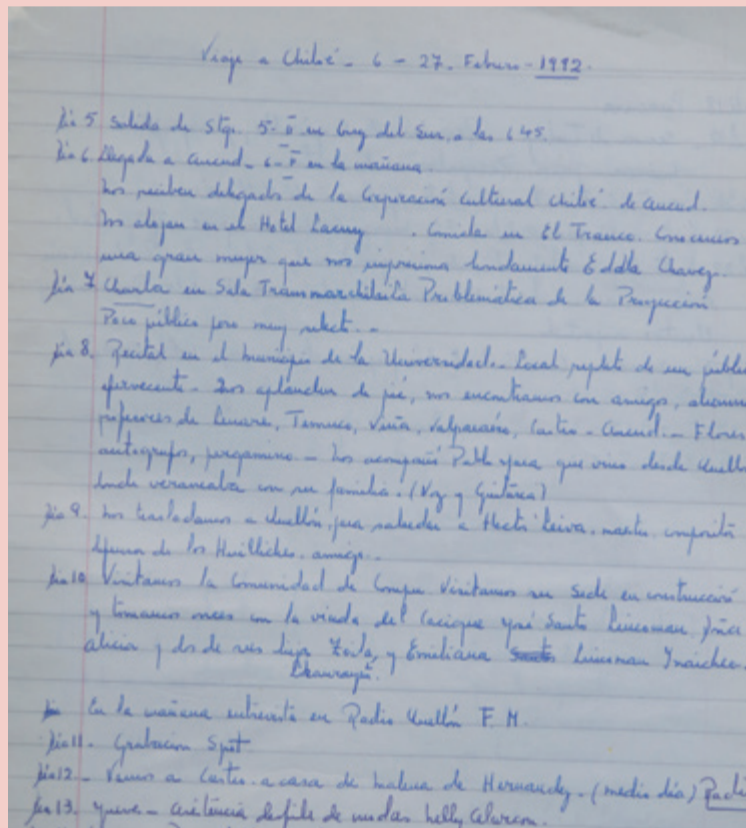 Viaje a Chiloé - 6 - 27 - Febrero - 1992.
Día 5 Salida de Stgo. 5-II en Cruz del Sur, a las 6 45.
Día 6 Llegada a Ancud - 6-II en la mañana.
Nos reciben delegados de la Corporación Cultural Chiloé de Ancud.
Nos alojan en el Hotel Lacuy. Comida en El Tranco. Conocemos
una gran mujer que nos impresiona hondamente Eddita Chavez.
Día 7 Charla en Sala Transmarchilay La Problemática de la Proyección
Poco público pero muy selecto. -
Día 8. Recital en el Municipio de la Universidad. Local repleto de un público
efervecente - Nos aplauden de pié, nos encontramos con amigos, alumnos
profesores de Linares, Temuco, Viña, Valparaíso, Castro - Ancud. - Flores
autografos, pergamino - Nos acompañó Pablo que vino desde Quellón
donde veraneaba con su familia. (Voz y Guitarra)
Día 9. Nos trasladamos a Quellón, para saludar a Hector Leiva, maestro compositor
defensor de los Huilliches, amigo. -
Día 10 Visitamos la Comunidad de Compu Visitamos su Sede en construcción
y tomamos onces con la viuda del Cacique José Santos Lincoman, Doña
Alicia y dos de sus hijas Zoila, y Emiliana Lincoman
En la mañana entrevista en Radio Quellón F. M.
Día 11. - Grabación Spot
Día 12 - Vamos a Castro - a casa de Malena de Hernandez. (medio día) Radio
Día 13. Jueves - asistencia desfile de modas Nelly Alarcon.